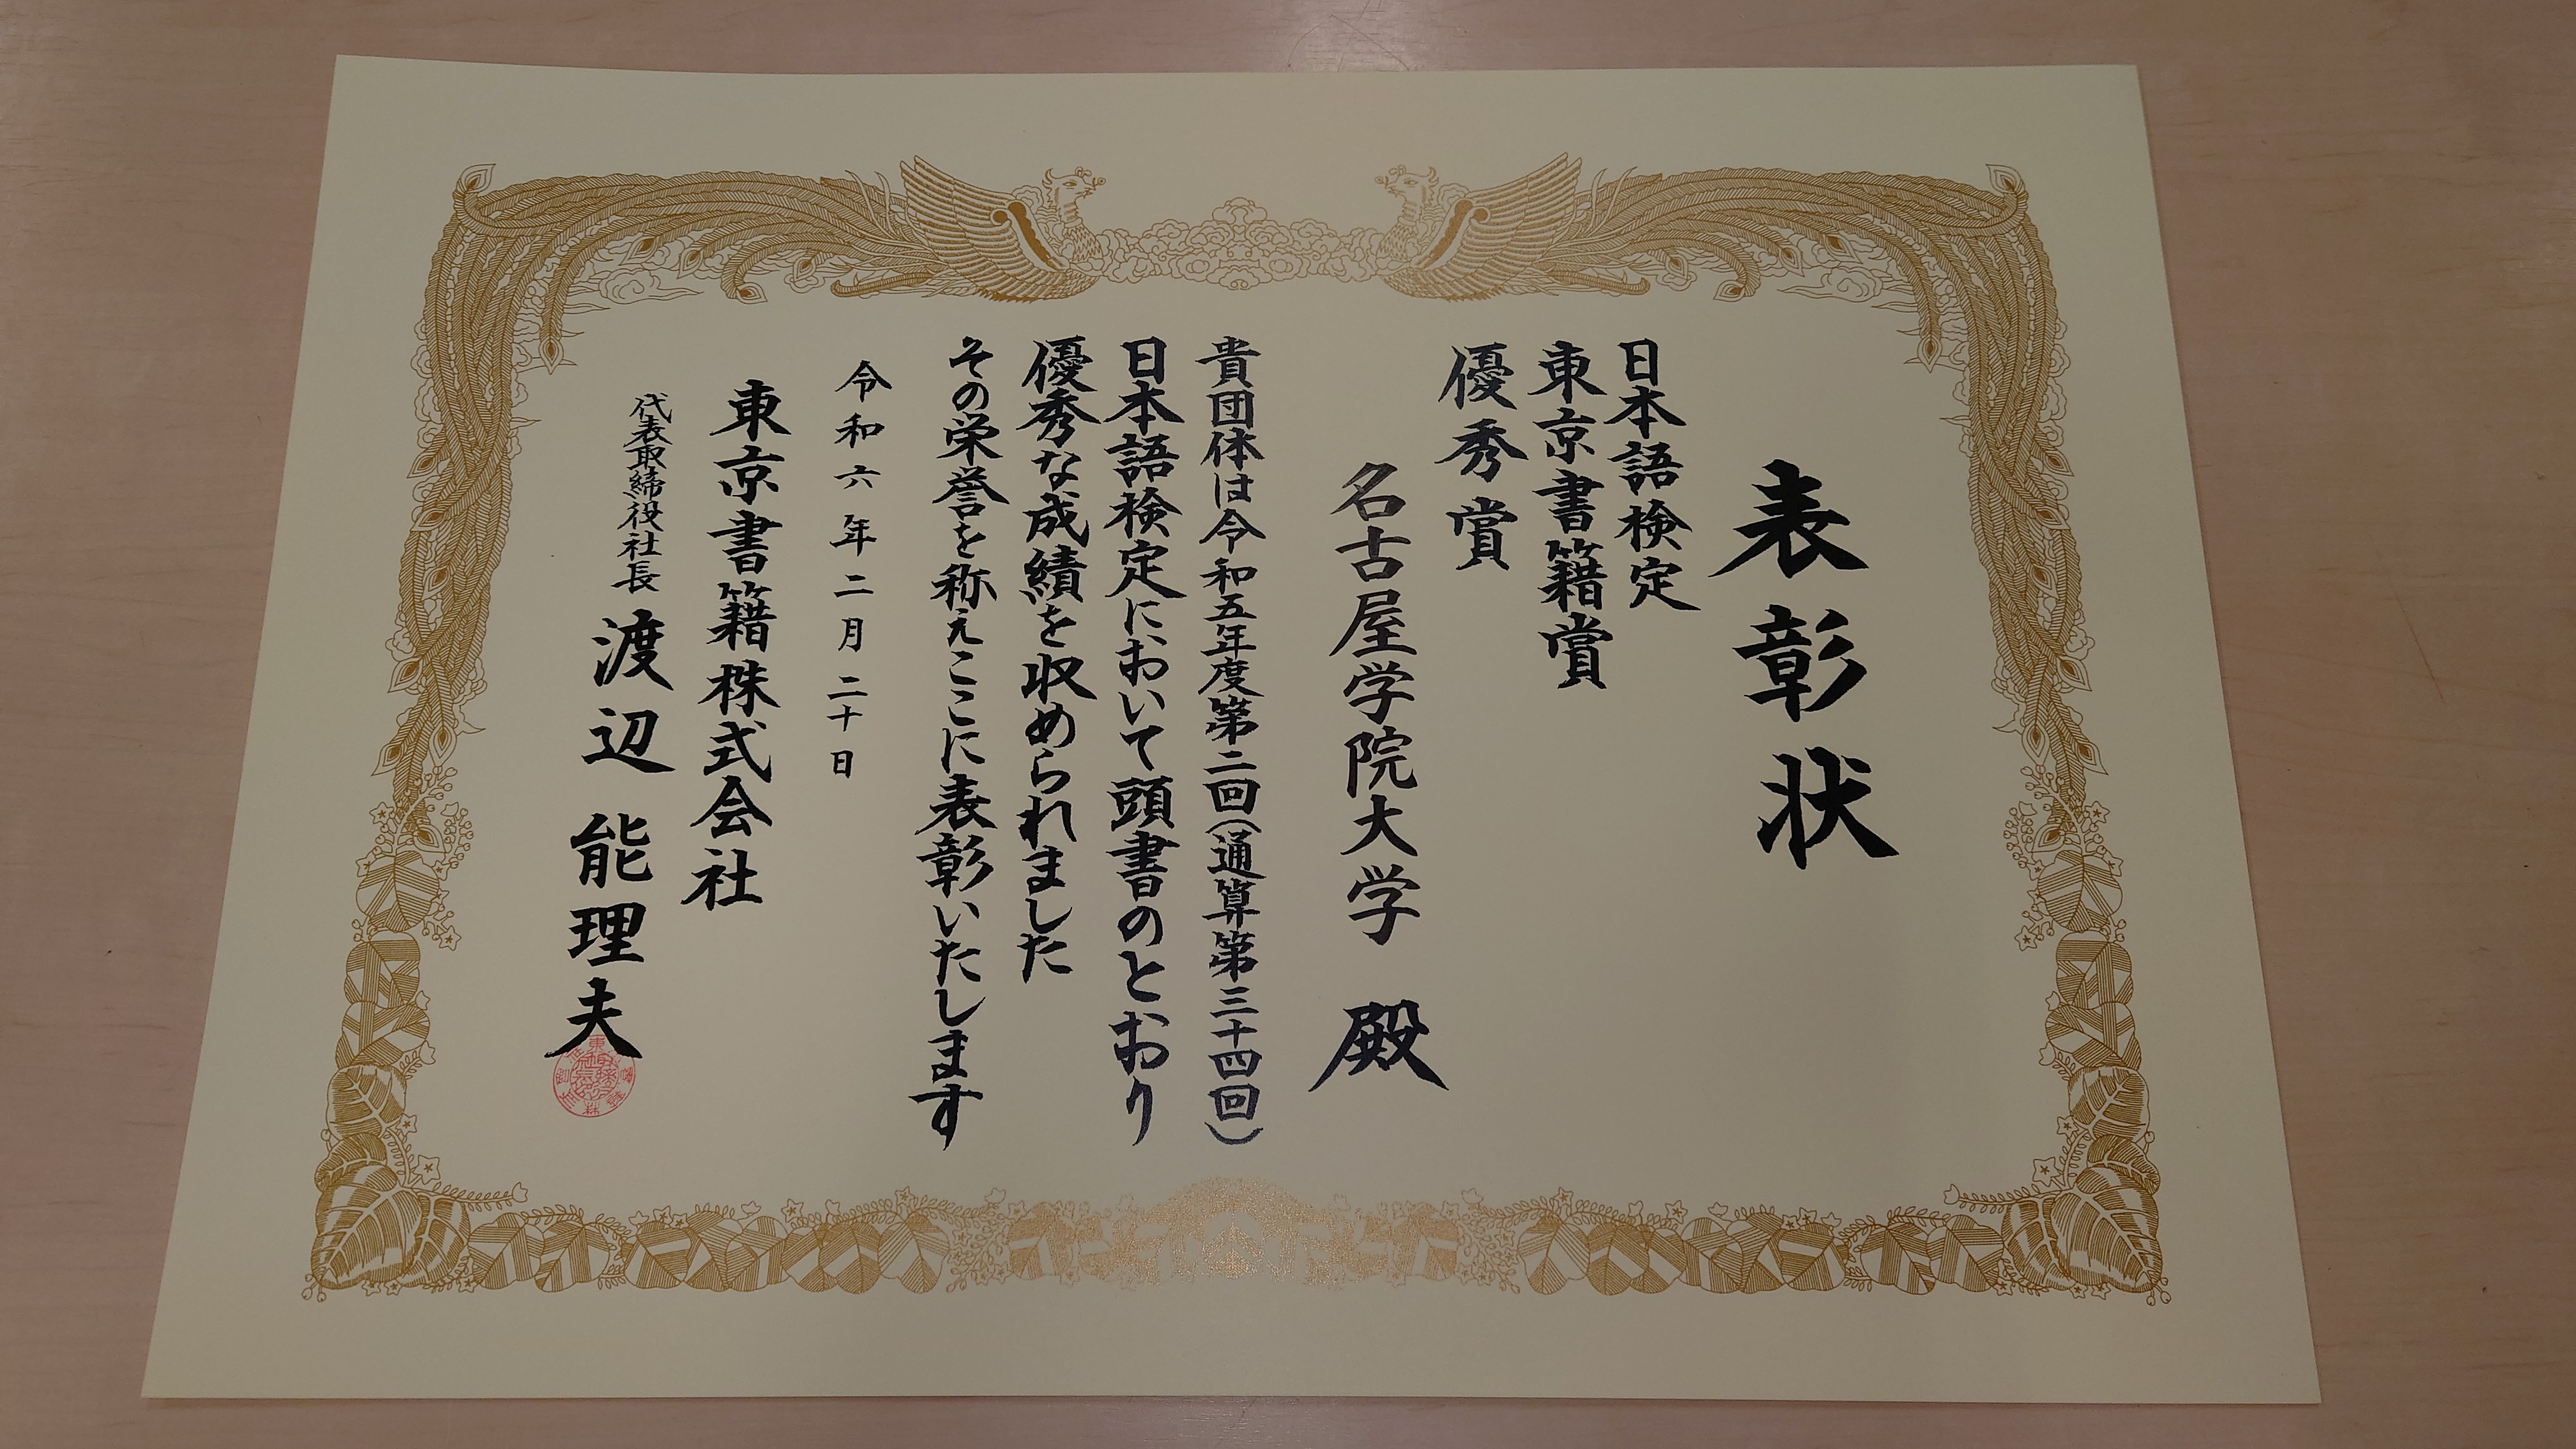 表彰状
日本語検定
東京書籍賞
優秀賞
名古屋学院大学 殿
貴団体は令和五年度第二回(通算第三十四回)
日本語検定において頭書のとおり
優秀な成績を収められました
その栄誉を称えここに表彰いたします
令和六年二月二十日
東京書籍株式会社
代表取締役社長 渡辺能理夫